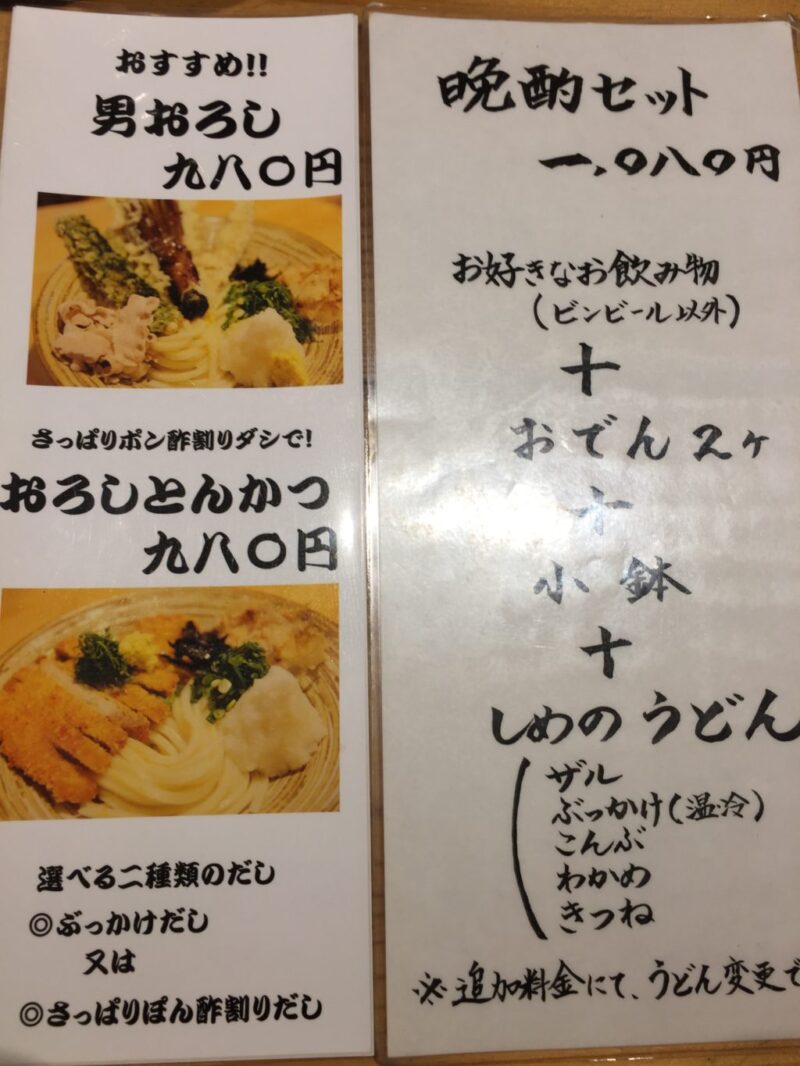 おすすめ!!
男おろし
九八〇円
さっぱりポン酢割りダシで!
おろしとんかつ
九八〇円
選べる二種類のだし
◎ぶっかけだし
又は
◎さっぱりぽん酢割りだし
晩酌セット
一,〇八〇円
お好きなお飲み物
(ビンビール以外)
+
おでん2ヶ
+
小鉢
+
しめのうどん
(ザル
ぶっかけ(温冷)
こんぶ
わかめ
きつね
※追加料金にて、うどん変更で